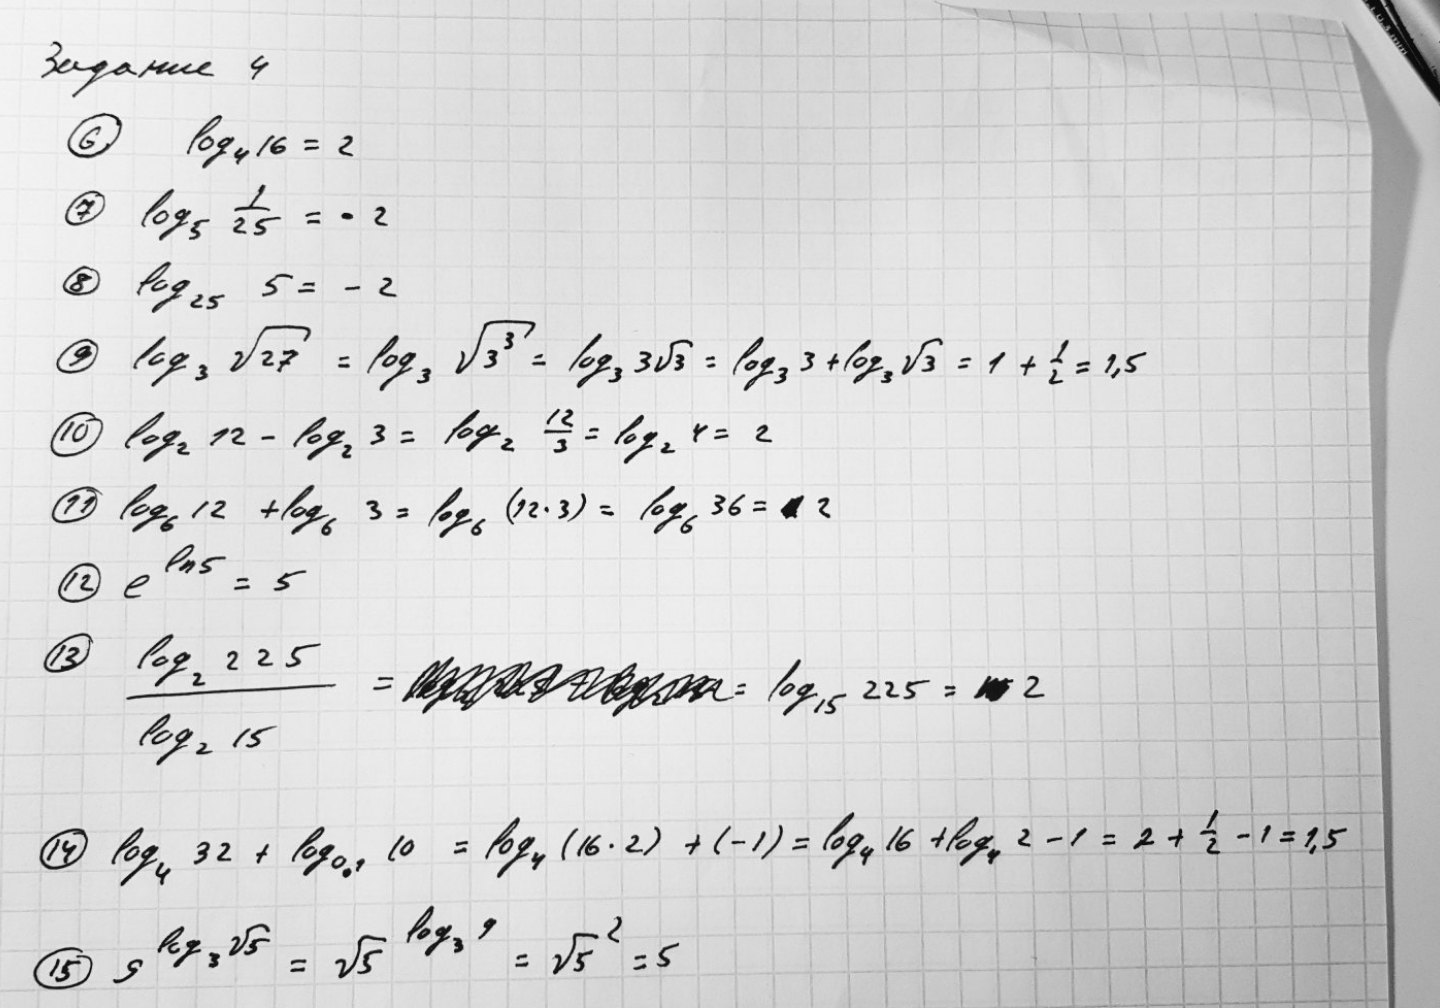 Задание 4
6 log₄ 16 = 2
7 log₅ 1/25 = - 2
8 log₂₅ 5 = - 2
9 log₃ √27 = log₃ √3³ = log₃ 3√3 = log₃ 3 + log₃ √3 = 1 + 1/2 = 1,5
10 log₂ 12 - log₂ 3 = log₂ 12/3 = log₂ 4 = 2
11 log₆ 12 + log₆ 3 = log₆ (12·3) = log₆ 36 = 2
12 e^(ln5) = 5
13 log₂ 225 / log₂ 15 = = log₁₅ 225 = 2
14 log₄ 32 + log₀.₁ 10 = log₄ (16·2) + (-1) = log₄ 16 + log₄ 2 - 1 = 2 + 1/2 - 1 = 1,5
15 9^(log₃ √5) = √5^(log₃ 9) = √5² = 5